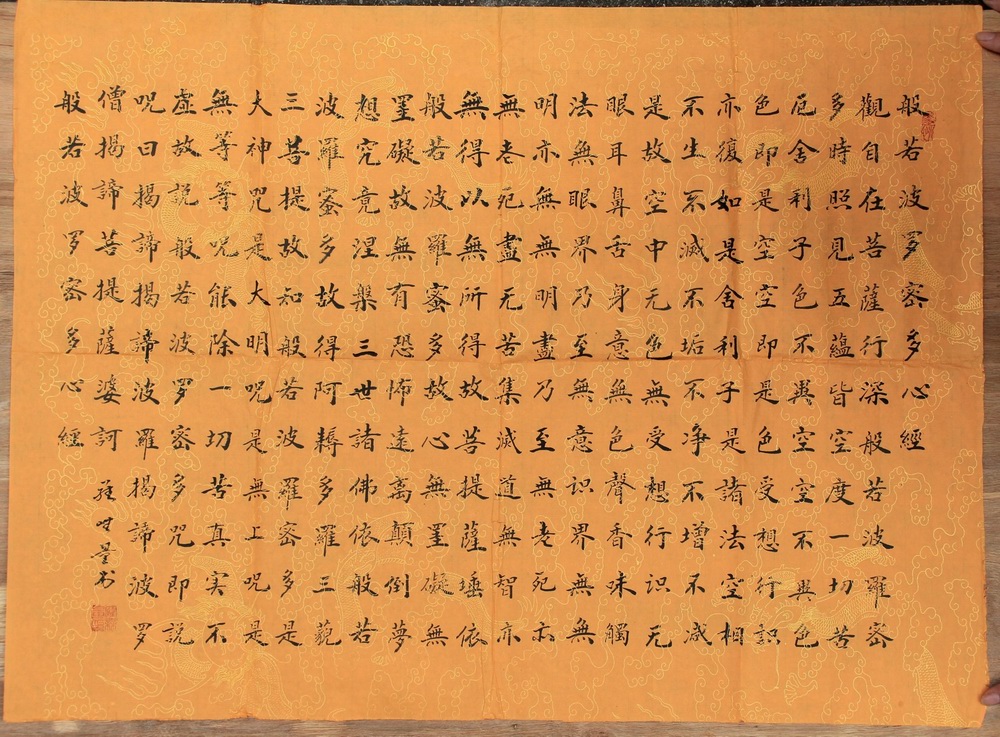 般若波罗密多心經
觀自在菩薩行深般若波羅密
多時照見五蘊皆空度一切苦
厄舍利子色不異空空不異色
色即是空空即是色受想行識
亦復如是舍利子是諸法空相
不生不滅不垢不净不增不减
是故空中无色無受想行识无
眼耳鼻舌身意無色聲香味觸
法無眼界乃至無意识界無無
明亦無無明盡乃至無老死亦
無老死盡无苦集滅道無智亦
無得以無所得故菩提薩埵依
般若波羅蜜多故心無罣礙無
罣礙故無有恐怖遠离顛倒夢
想究竟涅槃三世諸佛依般若
波羅蜜多故得阿耨多羅三藐
三菩提故知般若波羅密多是
大神咒是大明咒是無上咒是
無等等咒能除一切苦真实不
虛故說般若波罗密多咒即說
呪曰揭諦揭諦波羅揭諦波罗
僧揭諦菩提薩婆訶
般若波罗密多心經